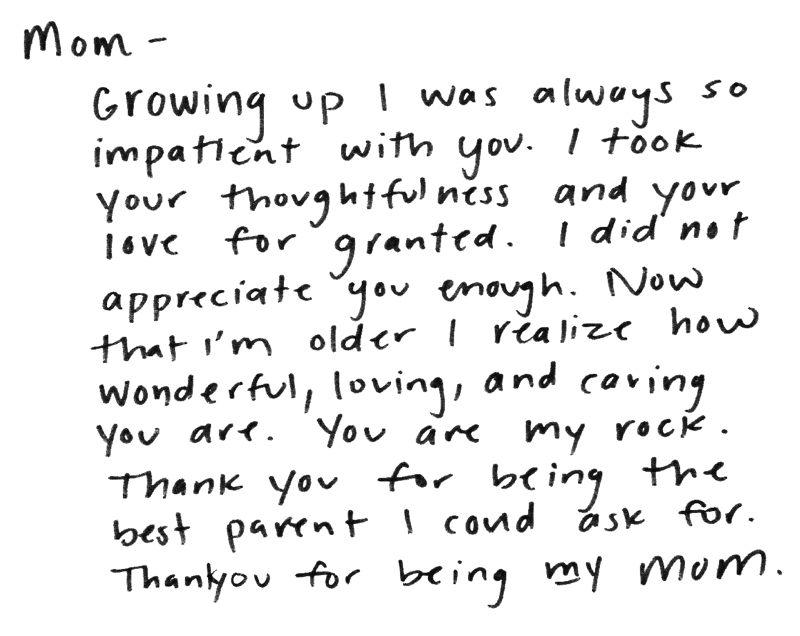 Mom -
Growing up I was always so
impatient with you. I took
your thoughtfulness and your
love for granted. I did not
appreciate you enough. Now
that I'm older I realize how
wonderful, loving, and caring
you are. You are my rock.
Thank you for being the
best parent I coud ask for.
Thankyou for being my mom.